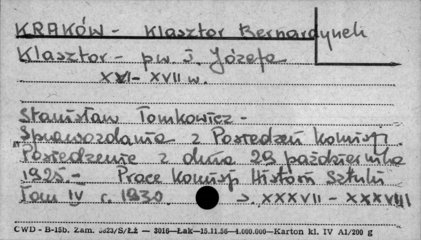 KRAKÓW - Klasztor Bernardyneli
Klasztor - p.w. ś. Józefa
XVI - XVII w.
Stanisław Tomkowicz -
Sprawozdanie z Posiedzeń Komisji.
Posiedzenie z dnia 29 października
1925. - Prace Komisji Historii Sztuki
Tom IV c. 1930 s. XXXVII - XXXVIII
CWD - B-15b. Zam. 5823/S/Łż — 3016—Łak—15.11.56—4.000.000—Karton kl. IV A1/200 g